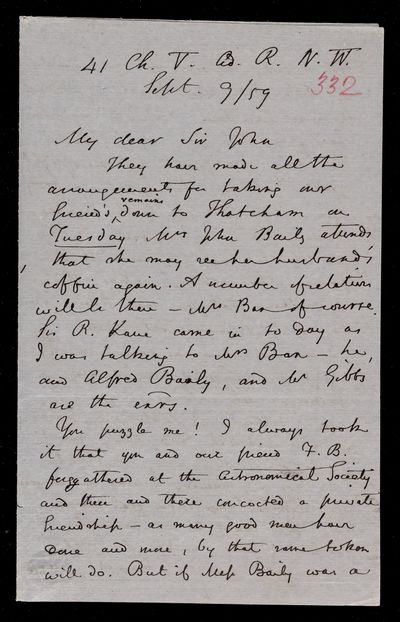 41 Ch. V. Ad. R. N. W.
Sept. 9/59
332
My dear Sir John
They have made all the
arrangements for taking our
friend's remains down to Thatcham on
Tuesday Mrs John Baily attends,
that she may see her husband's
coffin again. A number of relations
will be there — Mrs Bax of course.
Sir R. Kane came in to day as
I was talking to Mrs Bax — he,
and Alfred Baily, and Mr Gibbs
are the exrs.
You puzzle me! I always took
it that you and our friend F. B.
foregathered at the Astronomical Society
and then and there concocted a private
friendship — as many good men have
done and more, by that same token
will do. But if Miss Baily was a